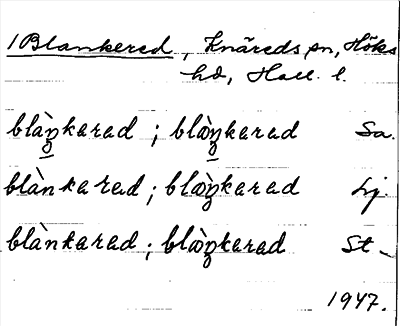 /Blankered, Knäreds sn, Höks
hd, Hall. l.
blàŋkarad ; blæ̀ŋkarad Sa.
blànkarad ; blæ̀ŋkarad Lj.
blànkarad ; blæ̀ŋkarad St.
1947.